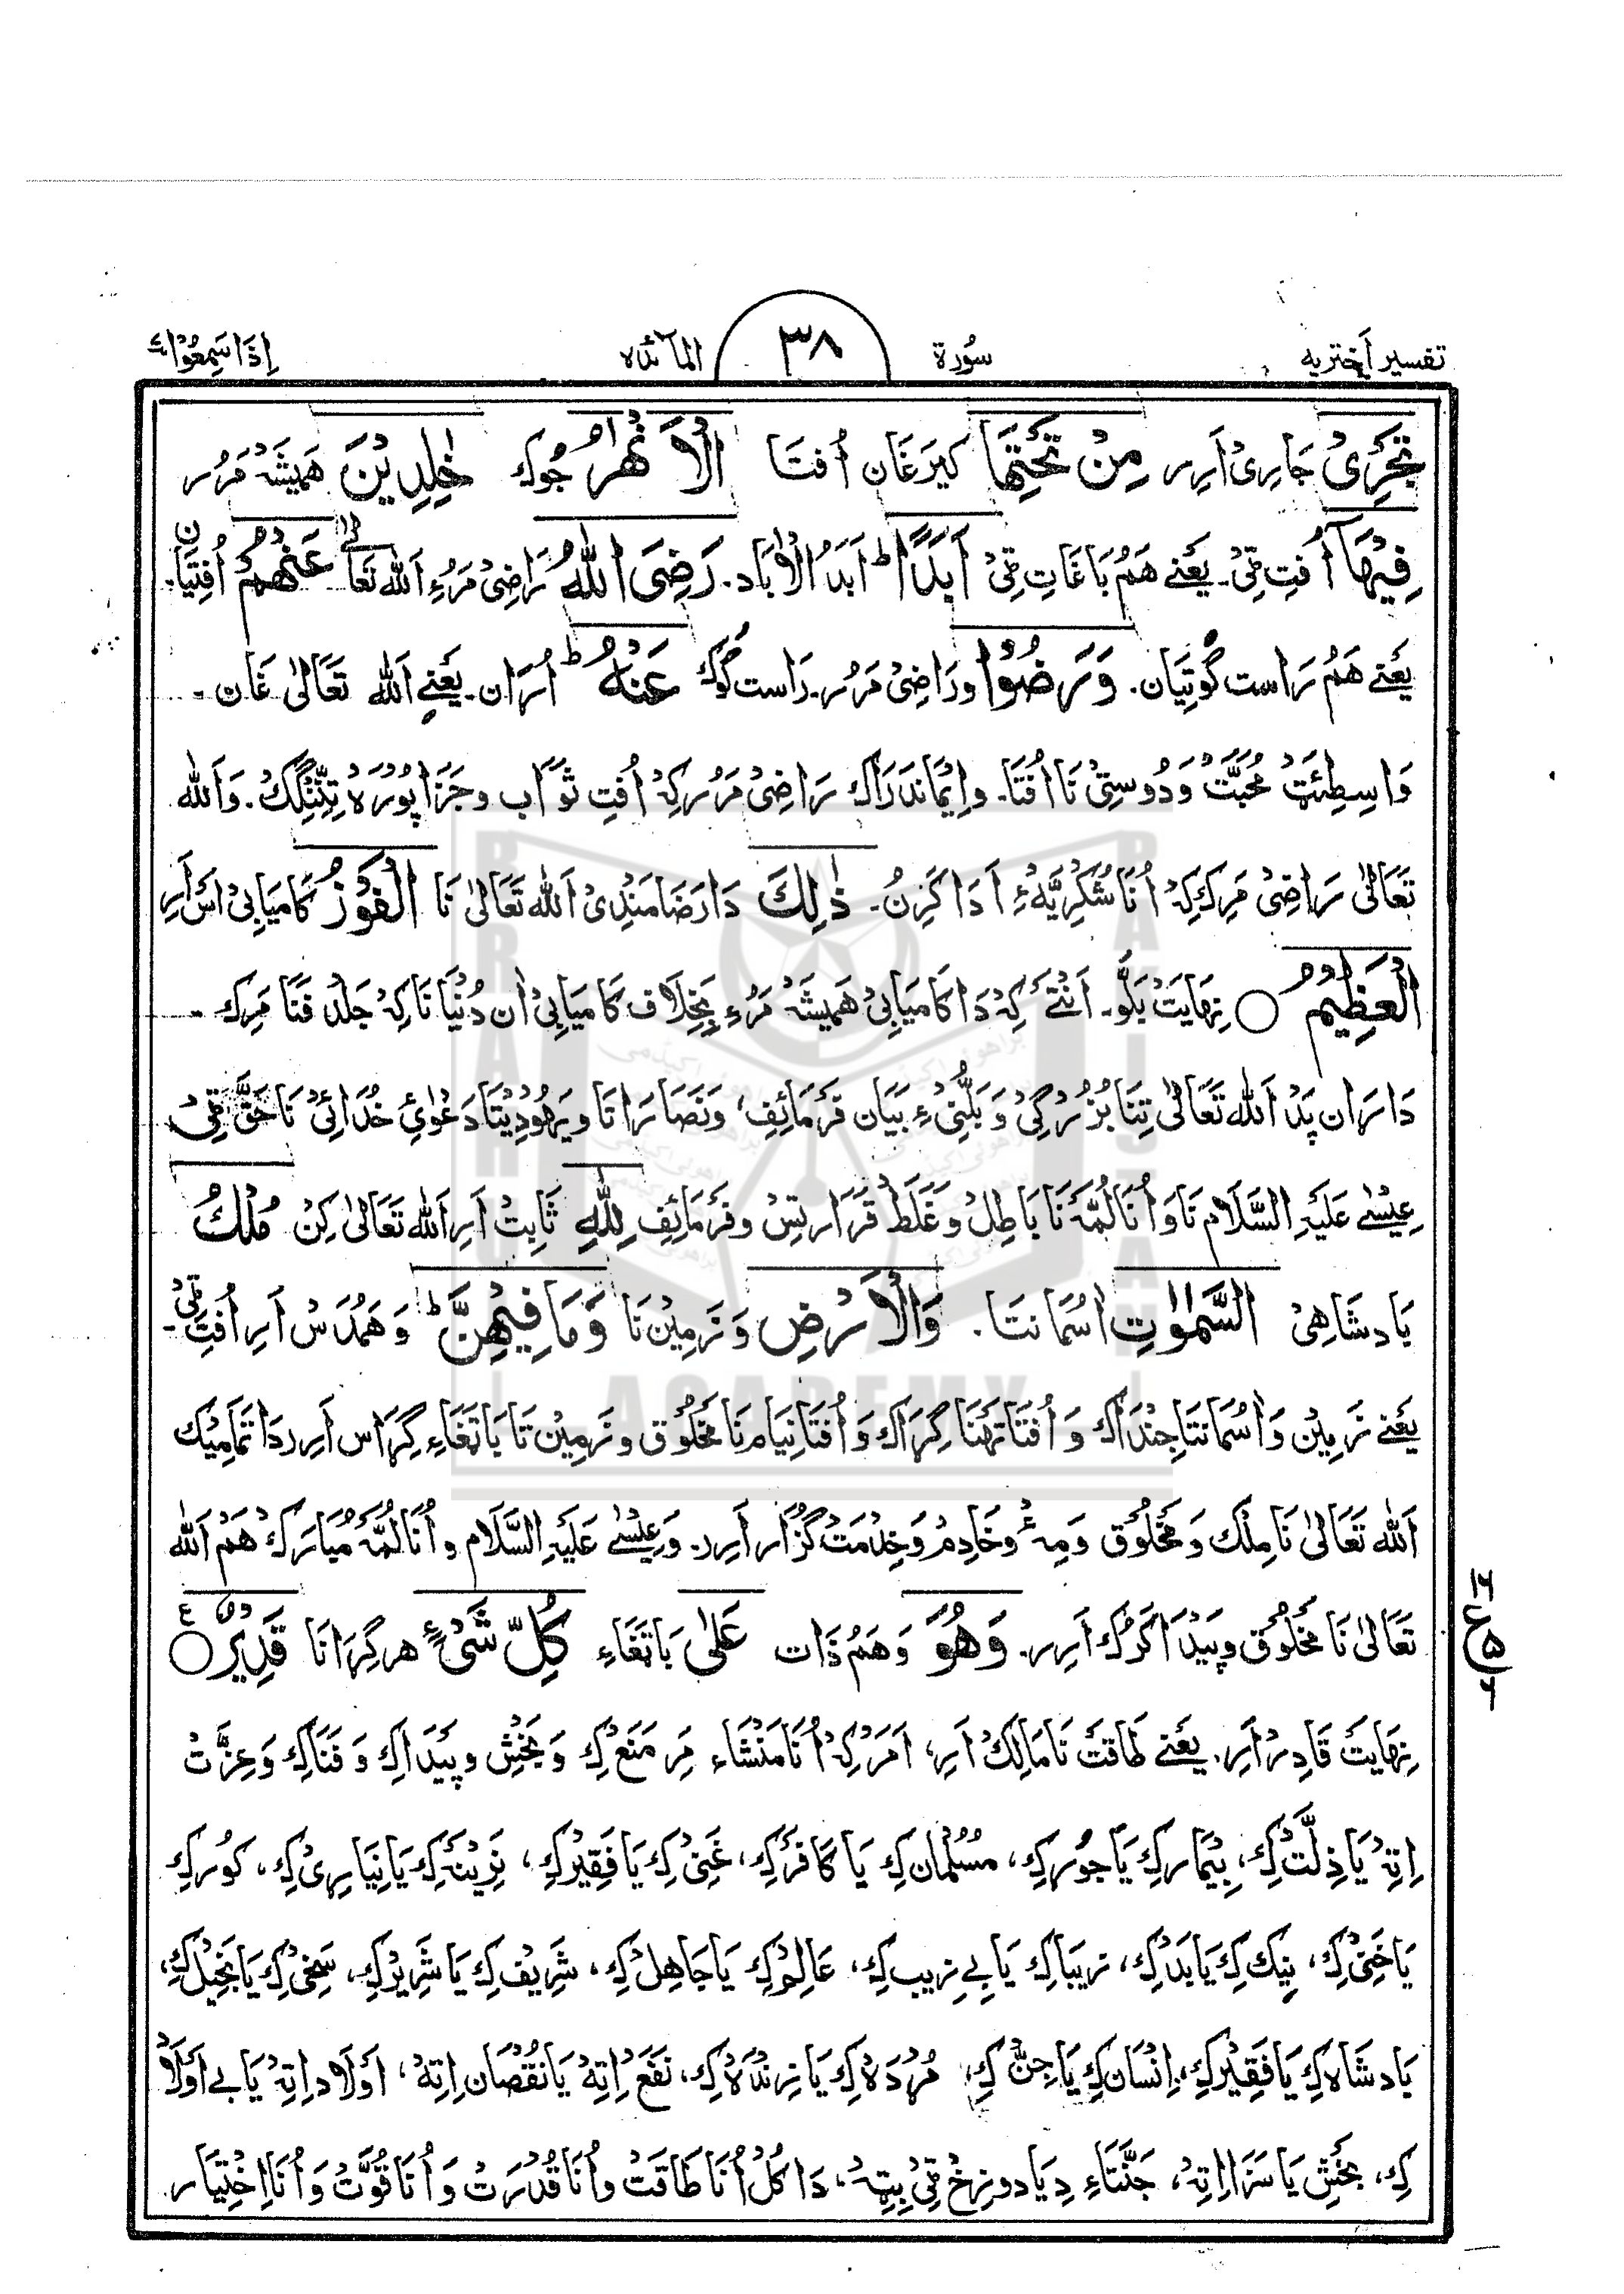 تفسیر اَختریه سُورة ٣٨ المآئدہ اِذَا سَمِعُوْا ٧
تَجْرِیْ جَارِیْ اَرِر مِنْ تَحْتِهَا کیرَغَان اُفتَا الْاَنْهٰرُ جُوک خٰلِدِیْنَ هَمیشَہ مَرُر
فِیْهَآ اُفتِ ٹِیْ۔ یَعنے هَمُ بَاغَاتِ ٹِیْ اَبَدًا ؕ اَبَدُ الْاٰبَاد۔ رَضِیَ اللّٰهُ رَاضِیْ مَرُءِ اَللّٰه تَعَالٰے عَنْهُمْ اُفتِیَان۔
یَعنے هَمُ رَاست گوتِیَان۔ وَرَضُوْا ورَاضِیْ مَرُر۔ رَاست گوک عَنْهُ ؕ اُرَان۔ یَعنے اَللّٰه تَعَالٰی غَان۔
وَاسِطِئَتْ مُحَبَّتْ وَدُوستِیْ نَا اُفتَا۔ واِیْمَاندَرَاک رَاضِیْ مَرُر کِہْ اُفتِ ثَوَاب وجَزَا پُوْرَہ تِنِّنگِکْ۔ وَاَللّٰه
تَعَالٰی رَاضِیْ مَرِک کِہْ اُنَا شُکْرِیَّہءِ اَدَا کَرِنُ۔ ذٰلِكَ دَا رَضَامَنْدِیْ اَللّٰه تَعَالٰی نَا الْفَوْزُ کَامیَابِیْ اَس اَرِ
الْعَظِیْمُ ○ نِهَایَتْ بَلَّو۔ اَنتَےْ کِہْ دَا کَامیَابِیْ هَمیشَہْ مَرُءِ بِخِلَاف کَامیَابِیْ ان دُنْیَا نَا کِہْ جَلْد فَنَا مَرِک۔
دَارَان پَدْ اَللّٰه تَعَالٰی تِنَا بُزُرْگِیْ وَبَلُّنِیْ ءِ بَیَان فَرْمَائِفِ، وَنَصَارَاتَا ویَهُوْدِیْتَا دَعْوَائِ خُدَائِیْ نَا حَقَّ ٹِیْ
عِیْسٰے عَلَیْہِ السَّلَام نَا وَ اُنَا لُمَّہ نَا بَاطِلْ وغَلَطْ قَرَار تِسْ وفَرْمَائِفِ لِلّٰهِ ثَابِتْ اَرِ اَللّٰه تَعَالٰی کِنْ مُلْكُ
بَادشَاهِیْ السَّمٰوٰتِ اٰسْمَانتَا۔ وَالْاَرْضِ وَزَمِیْن نَا وَمَا فِیْهِنَّ ؕ وَهَمُدَسْ اَرِ اُفتِ ٹِیْ۔
یَعنے زَمِیْن وَاٰسْمَانتَا جِنْدَاک وَ اُفتَا تَهْنَا گِرَاک وَ اُفتَا نیَام نَا مَخْلُوق وزَمِیْن تَا بَاتَغَاءِ گِرَاس اَرِر دَا تَمَامِیْک
اَللّٰه تَعَالٰی نَا مِلْک وَمَخْلُوق وَمِہْ وَخَادِمْ وَخِدْمَتْ گزَار اَرِر۔ وَعِیْسٰے عَلَیْہِ السَّلَام و اُنَا لُمَّہ مُبَارَک هَمْ اَللّٰه
تَعَالٰی نَا مَخْلُوق وپَیْدَا کَرُک اَرِر۔ وَهُوَ وَهَمُ ذَات عَلٰی بَاتَغَاءِ كُلِّ شَیْءٍ هر گِرَانَا قَدِیْرٌ ○ ع
نِهَایَتْ قَادِرْ اَرِ۔ یَعنے طَاقَتْ نَا مَالِکْ اَرِ، اَمَرْ کِہْ اُنَا مَنْشَاء مَرِ مَنْع کِ وَبَخْش وپَیْدَا کِ وَفَنَا کِ وَعِزَّتْ
اِتِہْ یَا ذِلَّتْ کِ، بِیْمَار کِ یَا جوْر کِ، مسُلْمَان کِ یَا کَافَرْ کِ، غَنِیْ کِ یَا فَقِیْر کِ، نَرِیْنَہ کِ یَا نِیَارِیْ کِ، کوْر کِ
یَا خَنِیْ کِ، نِیْک کِ یَا بَدْ کِ، زیبَا کِ یَا بے زیب کِ، عَالِمْ کِ یَا جَاهِلْ کِ، شَرِیْف کِ یَا شَرِیْر کِ، سَخِیْ کِ یَا بَخِیْل کِ،
بَادشَاه کِ یَا فَقِیْر کِ، اِنْسَان کِ یَا جِنّ کِ، مُرْدَہ کِ یَا زِنْدَہ کِ، نَفَعْ اِتِہْ یَا نُقْصَان اِتِہْ، اَوْلَاد اِتِہْ یَا بے اَوْلَاد
کِ، بَخْش یَا سَزَا اِتِہْ، جَنَّتَاءِ دِ یَا دوزَخْ ٹِیْ بِتِہْ، دَا کُلْ اُنَا طَاقَتْ و اُنَا قُدْرَتْ وَ اُنَا قُوَّتْ وَ اُنَا اِخْتِیَار